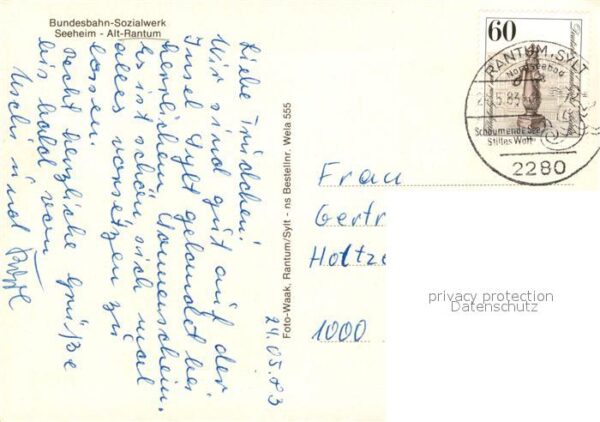 Bundesbahn-Sozialwerk
Seeheim - Alt-Rantum
Liebe Trudchen!
Wir sind gut auf der
Insel Sylt gelandet bei
herrlichem Sonnenschein.
es ist schön sich mal
alles vorsetzen zu
lassen.
recht herzliche Grüße
bis bald von
Uschi und
24.05.83
Foto-Waak, Rantum/Sylt - ns Bestellnr. Wela 555
60
RANTUM, SYLT
Nordseebad
5.83
Schäumende See
Stilles Watt
2280
Frau
Gertr
Holtze
1000
privacy protection
Datenschutz